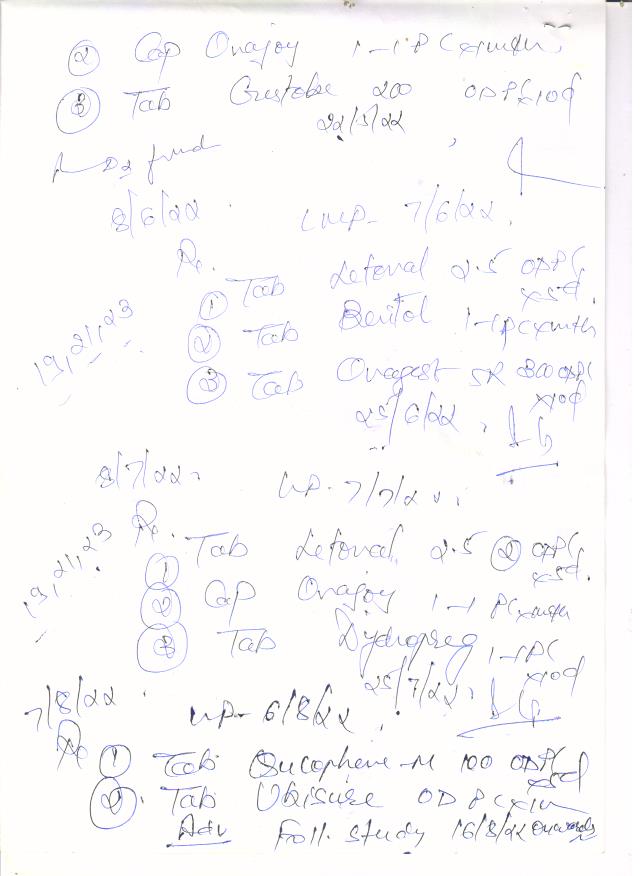 ② Cap Ovajoy 1-1 PC x mnth
③ Tab Gestobe 200 ODPC x 10d
22/5/22
8/6/22 LMP- 7/6/22.
Rx.
① Tab Letoval 2.5 ODPC x 5d.
② Tab Benitol 1-1 PC x mnth
19, 21, 23
③ Tab Ovagest SR 300 ODPC x 10d
25/6/22.
8/7/22. LMP- 7/7/22.
Rx.
19, 21, 23
① Tab Letoval 2.5 ② ODPC x 5d.
② Cap Ovajoy 1-1 PC x mnth
③ Tab Dydropreg 1-1 PC x 10d
25/7/22.
7/8/22. LMP- 6/8/22.
Rx
① Tab. M 100 ODPC x 5d
②. Tab Ubisure OD PC x 1m
Adv Foll. study 16/8/22 onwards